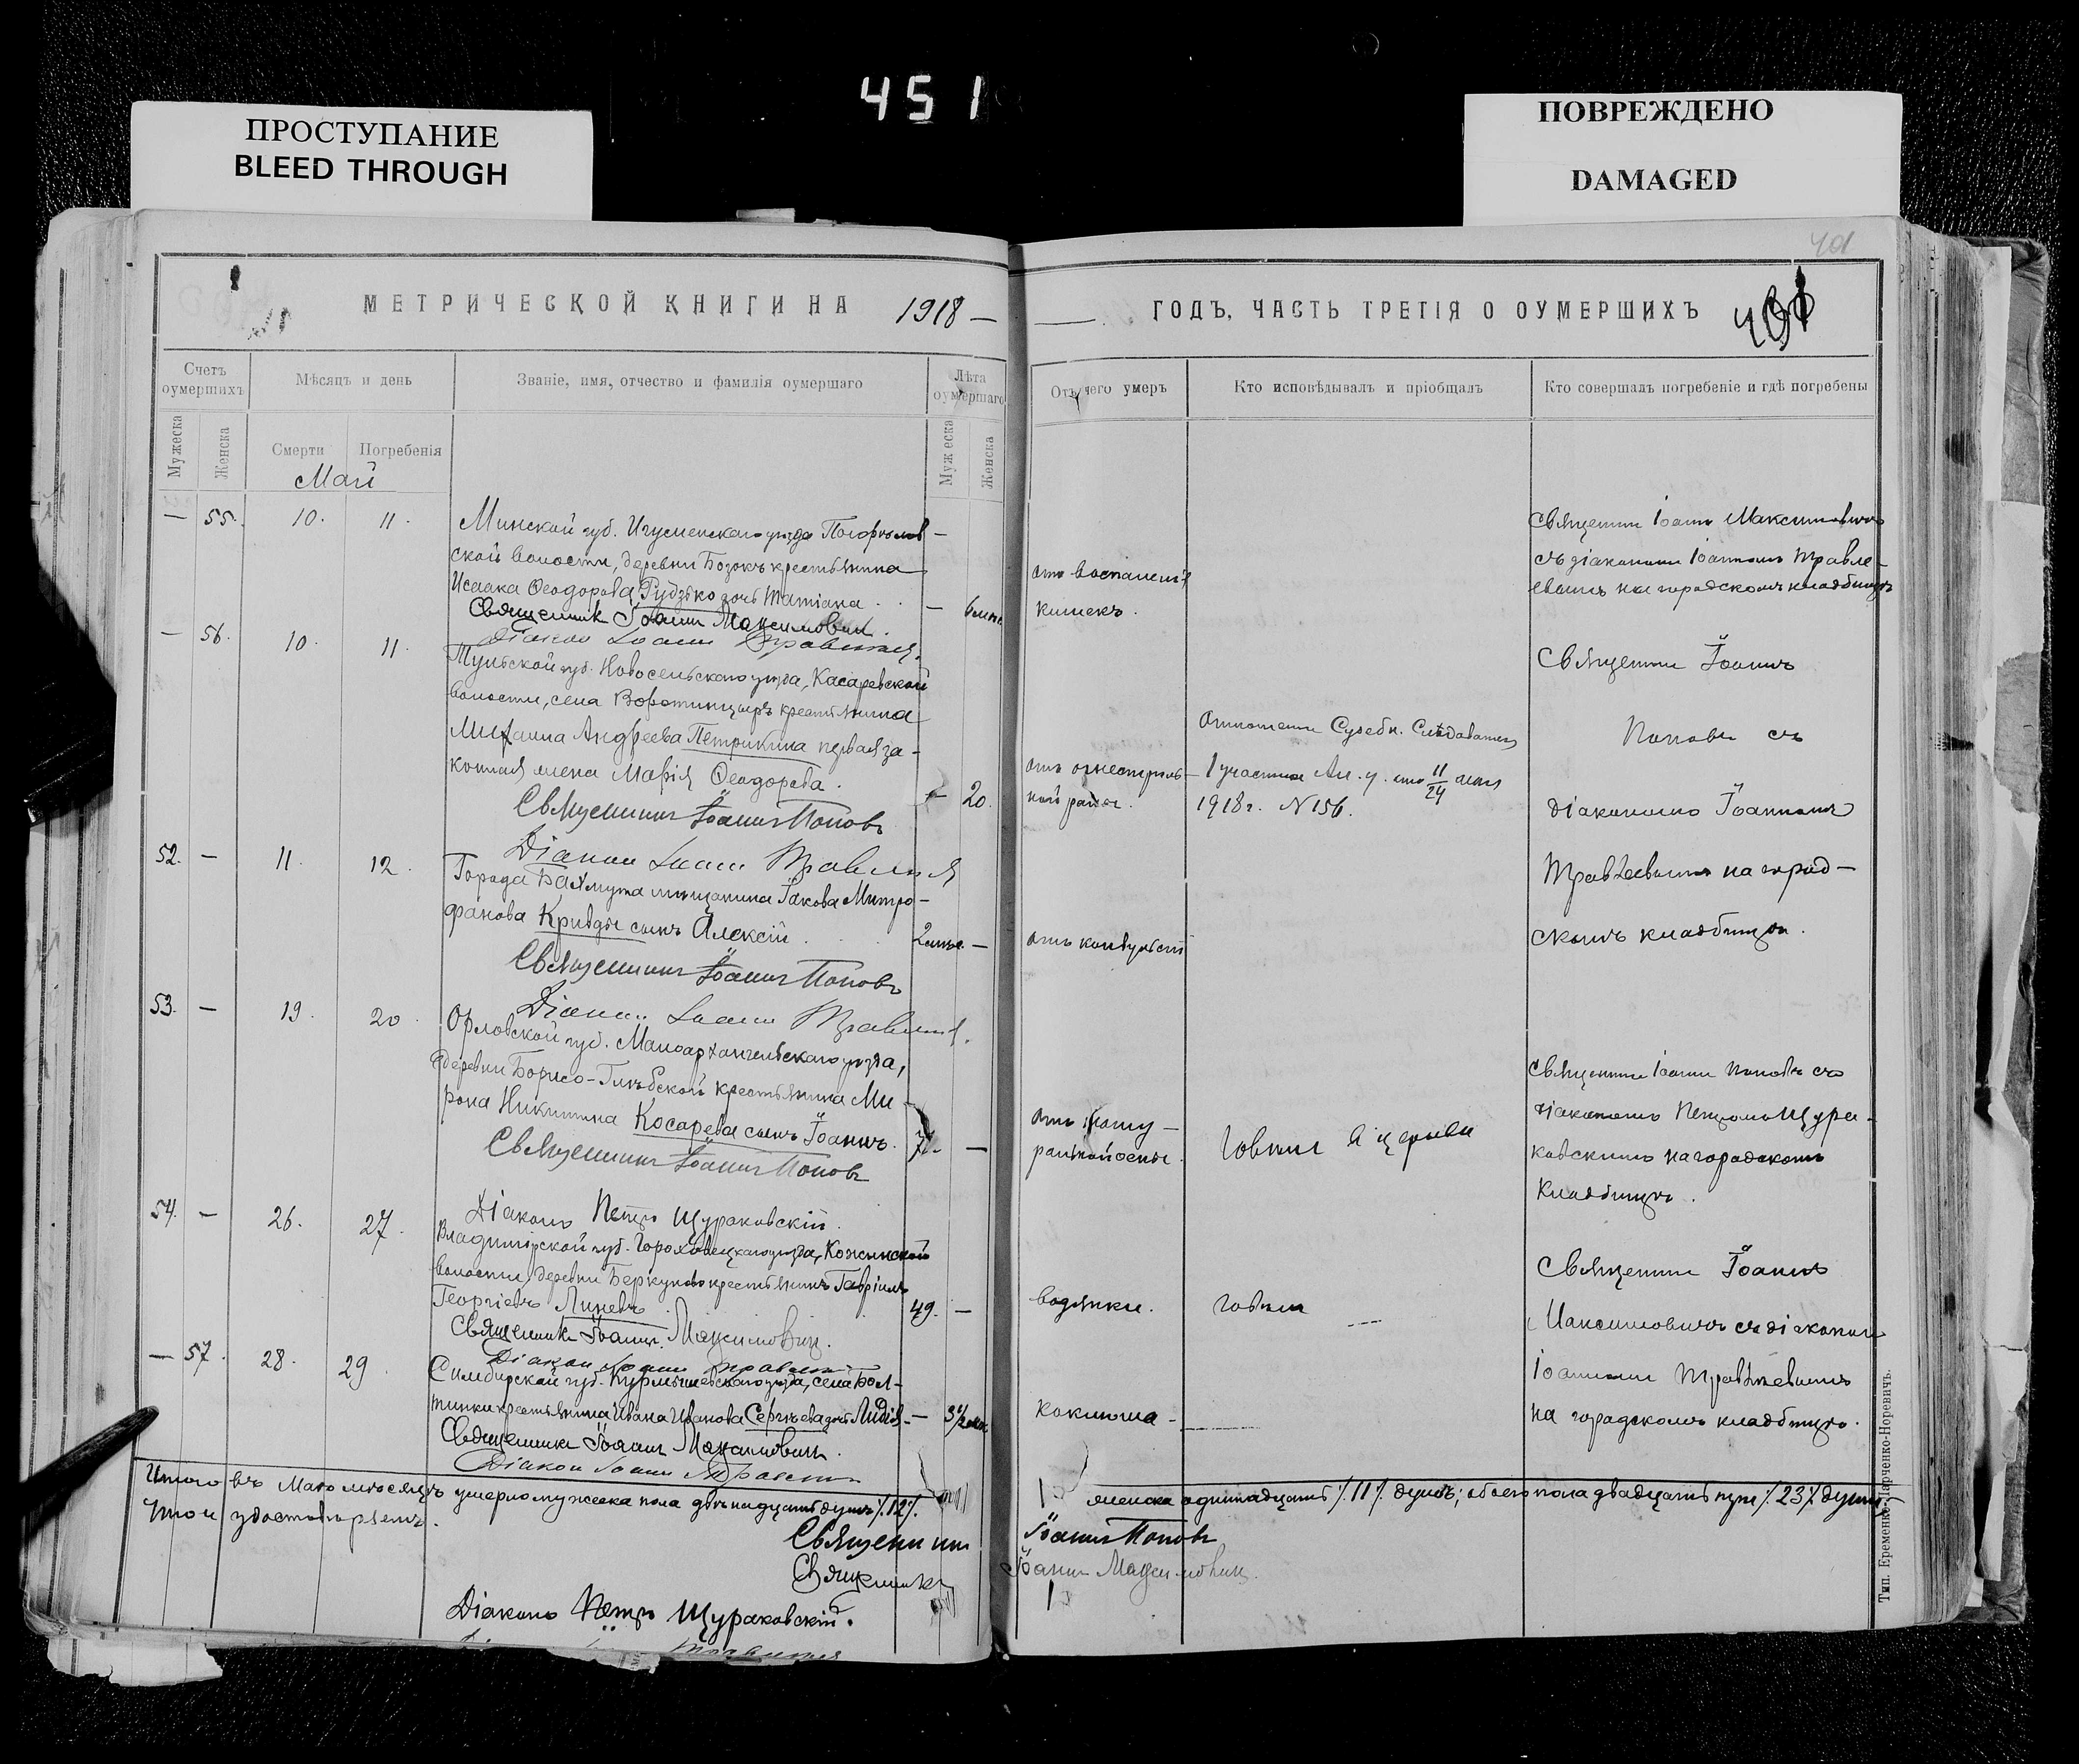 451
ПРОСТУПАНИЕ
BLEED THROUGH
ПОВРЕЖДЕНО
DAMAGED
401
МЕТРИЧЕСКОЙ КНИГИ НА 1918 —
Счетъ оумершихъ
Мѣсяцъ и день
Званіе, имя, отчество и фамилія оумершаго
Лѣта оумершаго
Мужеска
Женска
Смерти
Погребенія
Мужеска
Женска
Май
— 55. 10. 11. Минской губ. Игуменскаго уѣзда Погорѣлов-
ской волости, деревни Бозокъ крестьянина
Исаака Ѳеодорова Рудзько дочь Татіана . . —
Священникъ Іоаннъ Максимовичъ.
Діаконъ Іоаннъ Травлѣевъ.
— 56. 10. 11. Тульской губ. Новосельскаго уѣзда, Касаревской
волости, села Воротинцевъ крестьянина
Михаила Андреева Петрикина первая за-
конная жена Марія Ѳеодорова. — 20.
Священникъ Іоаннъ Поповъ
Діаконъ Іоаннъ Травлѣевъ
52. — 11. 12. Города Бахмута мѣщанина Іакова Митро-
фанова Кривды сынъ Алексій . . —
Священникъ Іоаннъ Поповъ
Діаконъ Іоаннъ Травлѣевъ.
53. — 19. 20. Орловской губ. Малоархангельскаго уѣзда,
деревни Борисо-Глѣбской крестьянина Ми-
рона Никитина Косарева сынъ Іоаннъ. 7. —
Священникъ Іоаннъ Поповъ
Діаконъ Петръ Щураковскій.
54. — 26. 27. Владимірской губ. Гороховецкаго уѣзда, Кожинской
волости, деревни Беркуново крестьянинъ Гавріилъ
Георгіевъ Линевъ 49. —
Священникъ Іоаннъ Максимовичъ.
Діаконъ Іоаннъ Травлѣевъ
— 57. 28. 29. Симбирской губ. Курмышевскаго уѣзда, села Бол-
тинки крестьянина Ивана Иванова Сергѣева дочь Лидія. —
Священникъ Іоаннъ Максимовичъ.
Діаконъ Іоаннъ Травлѣевъ
Итого въ Маѣ мѣсяцѣ умерло мужеска пола двѣнадцать душъ /.12/.
Что и удостовѣряемъ.
Священникъ
Священникъ
Діаконъ Петръ Щураковскій.
ГОДЪ, ЧАСТЬ ТРЕТІЯ О ОУМЕРШИХЪ
Отъ чего умеръ
Кто исповѣдывалъ и пріобщалъ
Кто совершалъ погребеніе и гдѣ погребены
отъ воспаленія
кишекъ.
Священникъ Іоаннъ Максимовичъ
съ діакономъ Іоанномъ Травле-
евымъ на городскомъ кладбищѣ
отъ огнестрѣль-
ной раны.
Отношеніе Судебн. Слѣдователя
1 участка Ал. у. отъ 11/24 мая
1918 г. N 156.
Священникъ Іоаннъ
Поповъ съ
діакономъ Іоанномъ
Травлѣевымъ на город-
скомъ кладбищѣ.
отъ конвульсій
отъ нату-
ральной оспы.
Говѣлъ въ церкви
Священникъ Іоаннъ Поповъ съ
діакономъ Петромъ Щура-
ковскимъ на городскомъ
кладбищѣ.
водянки.
говѣлъ
Священникъ Іоаннъ
Максимовичъ съ діакономъ
Іоанномъ Травлѣевымъ
на городскомъ кладбищѣ.
коклюша
женска одиннадцать /.11/. душъ; обоего пола двадцать три /.23/. души,
Іоаннъ Поповъ
Іоаннъ Максимовичъ.
Тип. Еременко-Марченко-Норевичъ.